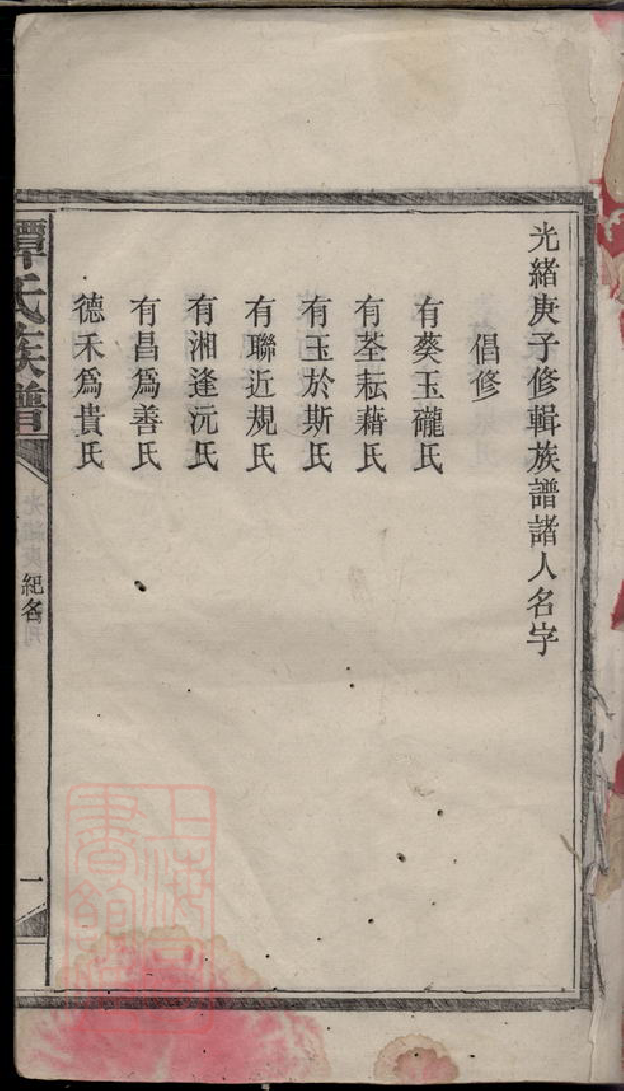 光緒庚子修輯族譜諸人名字
倡修
有葵玉礲氏
有荃耘藉氏
有玉於斯氏
有聯近規氏
有湘逢沅氏
有昌為善氏
德禾為貴氏
譚氏族譜
紀名
一
上海圖書館藏